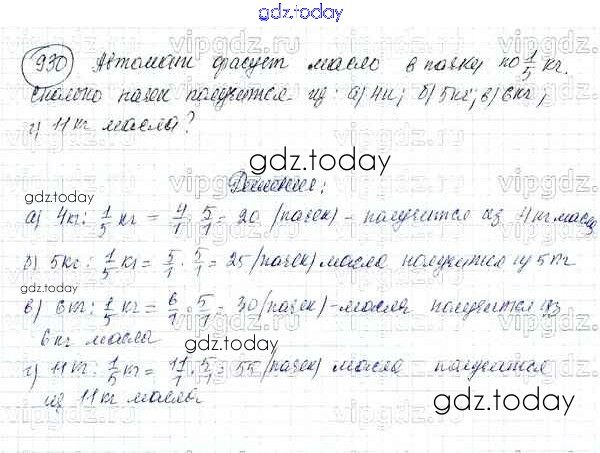 gdz.today
930 Автомат фасует масло в пачки по 1/5 кг.
Сколько пачек получится из: а) 4кг; б) 5кг; в) 6кг;
г) 11 кг масла?
gdz.today
Решение:
gdz.today
а) 4кг : 1/5 кг = 4/1 · 5/1 = 20 (пачек) - получится из 4 кг масла
б) 5кг : 1/5 кг = 5/1 · 5/1 = 25 (пачек) масла получится из 5кг
в) 6кг : 1/5 кг = 6/1 · 5/1 = 30 (пачек) - масла получится из
6 кг масла
gdz.today
г) 11кг : 1/5 кг = 11/1 · 5/1 = 55 (пачек) масла получится
из 11 кг масла
gdz.today
gdz.today